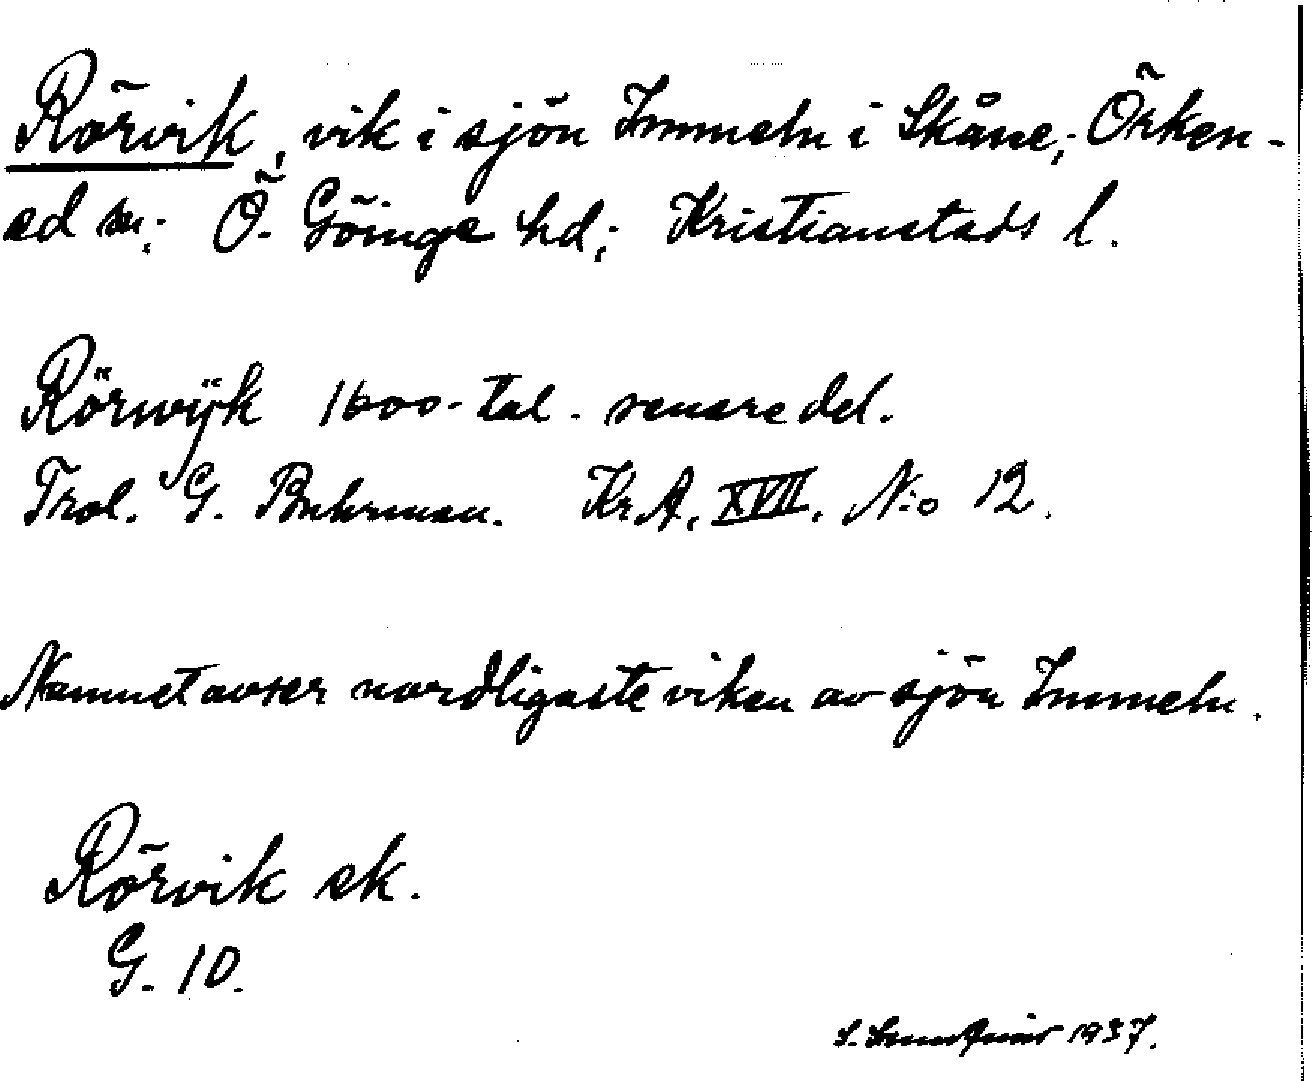 Rörvik, vik i sjön Immeln i Skåne; Örken-
ed sn; Ö. Göinge hd; Kristianstads l.
Rörwÿk 1600-tal. senare del.
Trol. G. Buhrman. Kr.A. XVII. N:o 12.
Namnet avser nordligaste viken av sjön Immeln.
Rörvik ek.
G. 10.
S. 1937.